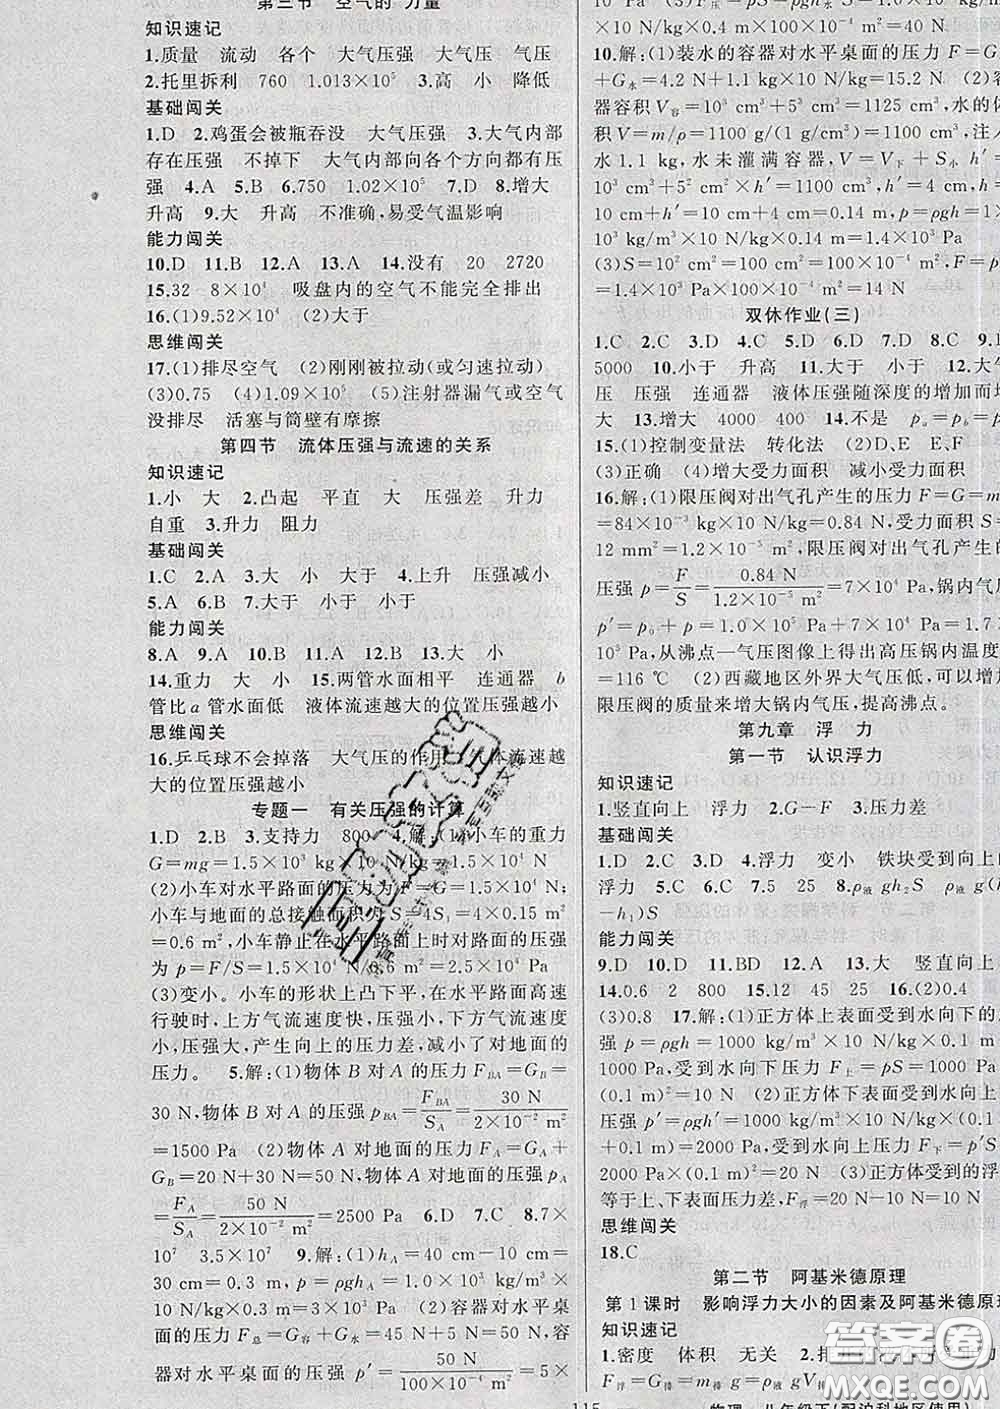 第三节 空气的“力量”
知识速记
1.质量 流动 各个 大气压强 大气压 气压
2.托里拆利 760 1.013×10⁵ 3.高 小 降低
基础闯关
1.D 2.鸡蛋会被瓶吞没 大气压强 3.大气内部
存在压强 不掉下 大气内部向各个方向都有压
强 4.A 5.B 6.750 1.02×10⁵ 7.D 8.增大
升高 9.大 升高 不准确,易受气温影响
能力闯关
10.D 11.B 12.A 13.A 14.没有 20 2720
15.32 8×10⁴ 吸盘内的空气不能完全排出
16.(1)9.52×10⁴ (2)大于
思维闯关
17.(1)排尽空气 (2)刚刚被拉动(或匀速拉动)
(3)0.75 (4)1.09×10⁵ (5)注射器漏气或空气
没排尽 活塞与筒壁有摩擦
第四节 流体压强与流速的关系
知识速记
1.小 大 2.凸起 平直 大 压强差 升力
自重 3.升力 阻力
基础闯关
1.C 2.A 3.大 小 大于 4.上升 压强减小
5.A 6.B 7.大于 小于 小于
能力闯关
8.A 9.A 10.B 11.A 12.B 13.大 小
14.重力 大 小 15.两管水面相平 连通器 b
管比a管水面低 液体流速越大的位置压强越小
思维闯关
16.乒乓球不会掉落 大气压的作用 流速越
大的位置压强越小
专题一 有关压强的计算
1.D 2.B 3.支持力 800 4.解:(1)小车的重力
G=mg=1.5×10³ kg×10 N/kg=1.5×10⁴ N
(2)小车对水平路面的压力为F=G=1.5×10⁴ N;
小车与地面的总接触面积为S=4S₁=4×0.15 m²
=0.6 m²,小车静止在水平路面上时对路面的压强
为p=F/S=1.5×10⁴ N/0.6 m²=2.5×10⁴ Pa
(3)变小。小车的形状上凸下平,在水平路面高速
行驶时,上方气流速度快,压强小,下方气流速度
小,压强大,产生向上的压力差,减小了对地面的
压力。 5.解:(1)物体B对A的压力F_BA=G_B=
30 N,物体B对A的压强p_BA=F_BA/S_A=30 N/(2×10⁻² m²)
=1500 Pa (2)物体A对地面的压力F_A=G_A+
G_B=20 N+30 N=50 N,物体A对地面的压强p_A
=F_A/S_A=50 N/(2×10⁻² m²)=2500 Pa 6.D 7.C 8.7×
10⁷ 3.5×10⁷ 9.解:(1)h_A=40 cm-10 cm=
30 cm=0.3 m,p=ρgh_A=1.0×10³ kg/m³×
10 N/kg×0.3 m=3×10³ Pa (2)容器对水平桌
面的压力F总=G容+G水=5 N+45 N=50 N,容
器对水平桌面的压强p′=50 N/(100×10⁻⁴ m²)=5×
10⁴ Pa (3)F压=pS=ρghS=
×10 N/kg×
10.解:(1)装水的容器对水平桌面的压力F=G
+G水=4.2 N+1.1 kg×10 N/kg=15.2 N (2)容
器容积V容=10³ cm³+5³ cm³=1125 cm³,水的体
积V=m/ρ=1100 g/(1 g/cm³)=1100 cm³,注入
水1.1 kg,水未灌满容器,V=V下+S水 h′=
10³ cm³+5² cm²×h′=1100 cm³,h′=4 cm,
10 cm+4 cm=0.14 m,p=ρgh=
10³ kg/m³×10 N/kg×0.14 m=1.4×10³ Pa
(3)S=10² cm²=100 cm²=0.01 m²,F=
=1.4×10³ Pa×100×10⁻⁴ m²=14 N
双休作业(三)
1.C 2.C 3.D 4.C 5.D 6.C 7.D 8.C 9.
5000 10.小于 升高 11.大于 小于 12.大气
压 压强 连通器 液体压强随深度的增加而增
大 13.增大 4000 400 14.不是 pₐ=p_b=
15.(1)控制变量法 转化法 (2)D、E E、F
(3)正确 (4)增大受力面积 减小受力面积
16.解:(1)限压阀对出气孔产生的压力F=G=m
=84×10⁻³ kg×10 N/kg=0.84 N,受力面积S=
12 mm²=1.2×10⁻⁵ m²,限压阀对出气孔产生的
压强p=F/S=0.84 N/(1.2×10⁻⁵ m²)=7×10⁴ Pa,锅内气压
p′=p₀+p=1×10⁵ Pa+7×10⁴ Pa=1.7×
10⁵ Pa,从沸点—气压图像上得出高压锅内温度
=116 ℃ (2)西藏地区外界大气压低,可以增大
限压阀的质量来增大锅内气压,提高沸点。
第九章 浮 力
第一节 认识浮力
知识速记
1.竖直向上 浮力 2.G-F 3.压力差
基础闯关
1.D 2.C 3.D 4.浮力 变小 铁块受到向上的
浮力 5.C 6.C 7.5 25 8.ρ液gh₂S ρ液g(h₂
-h₁)S
能力闯关
9.D 10.D 11.BD 12.A 13.大 竖直向上
14.0.6 2 800 15.12 45 25 16.(2)0.4
(3)0.8 17.解:(1)正方体上表面受到水向下的压
强p=ρgh=1000 kg/m³×10 N/kg×0.1 m=
1000 Pa,受到水向下压力F上=pS=1000 Pa×
(0.1 m)²=10 N (2)正方体下表面受到水向
上压强p′=ρgh′=1000 kg/m³×10 N/kg×(0.1 m
+0.1 m)=2000 Pa,受到水向上压力F下=p′S=
2000 Pa×(0.1 m)²=20 N (3)正方体受到的浮力
等于上、下表面压力差,F浮=20 N-10 N=10 N
思维闯关
18.C
第二节 阿基米德原理
第1课时 影响浮力大小的因素及阿基米德原理
知识速记
1.密度 体积 无关 2.排
F浮=G排=m排g=
115 物理·八年级下(配沪科地区使用)
答案圈
MXQE.COM